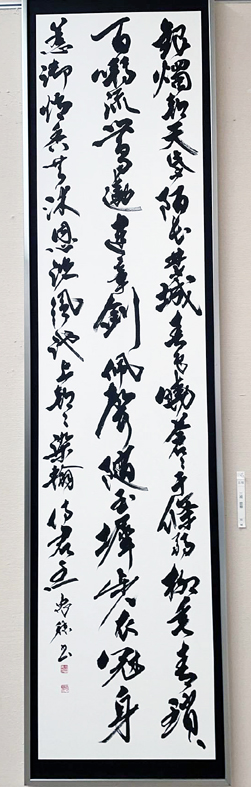 銀燭朝天紫陌長禁城春色曉蒼々千條弱柳垂青瑣
百囀流鶯遶建章劍佩聲隨玉墀步衣冠身
惹御爐香共沐恩波鳳池上朝々染翰侍君王